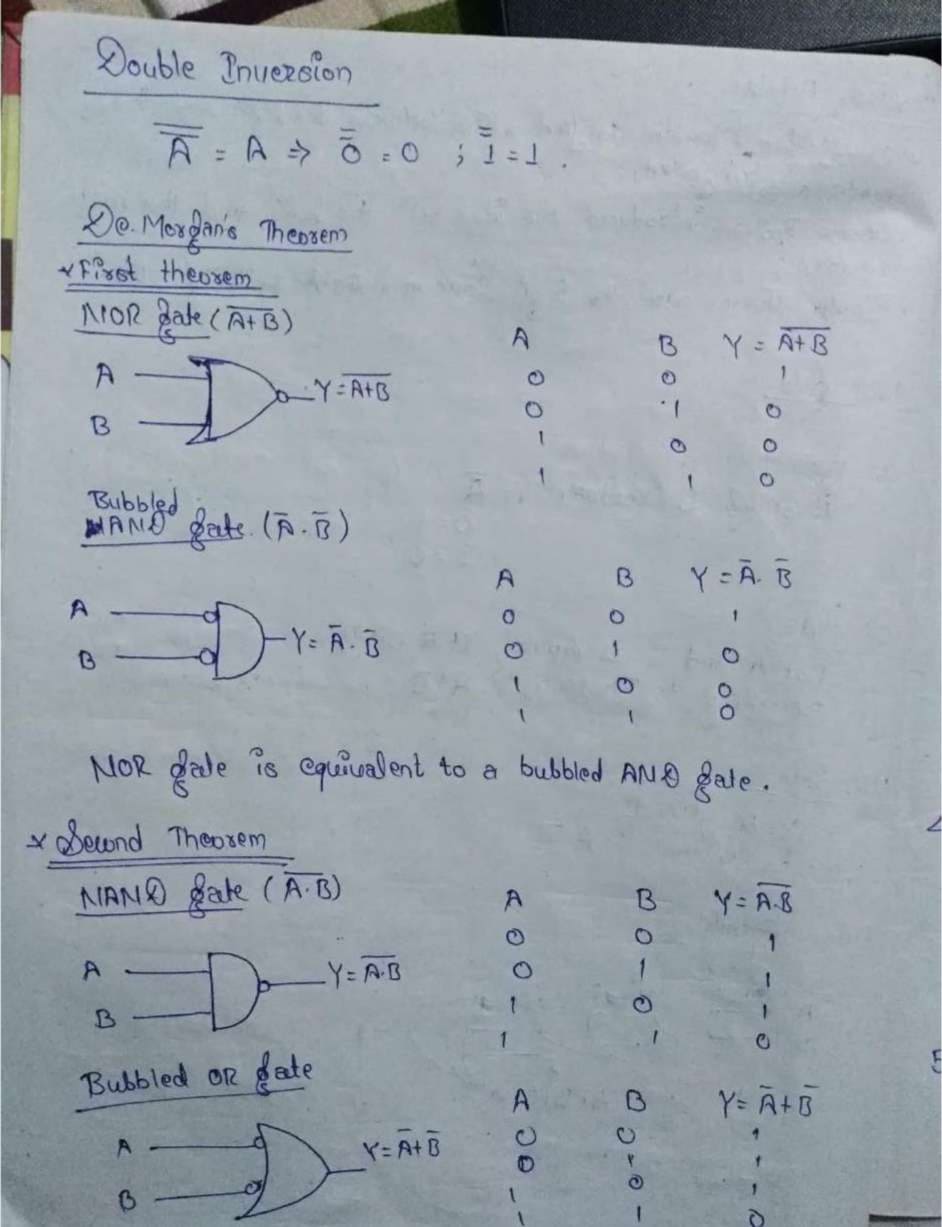 Double Inversion
A̿ = A ⇒ 0̿ = 0 ; 1̿ = 1 .
De. Morgan's Theorem
* First theorem
NOR gate ( \overline{A+B} )
A B Y = \overline{A+B}
0 0 1
0 1 0
1 0 0
1 1 0
A
B
Y = \overline{A+B}
Bubbled
AND gate. (A̅ . B̅)
A B Y = A̅ . B̅
0 0 1
0 1 0
1 0 0
1 1 0
A
B
Y = A̅ . B̅
NOR gate is equivalent to a bubbled AND gate .
* Second Theorem
NAND gate ( \overline{A.B} )
A B Y = \overline{A.B}
0 0 1
0 1 1
1 0 1
1 1 0
A
B
Y = \overline{A.B}
Bubbled OR gate
A B Y = A̅ + B̅
0 0 1
0 1 1
1 0 1
1 1 0
A
B
Y = A̅ + B̅